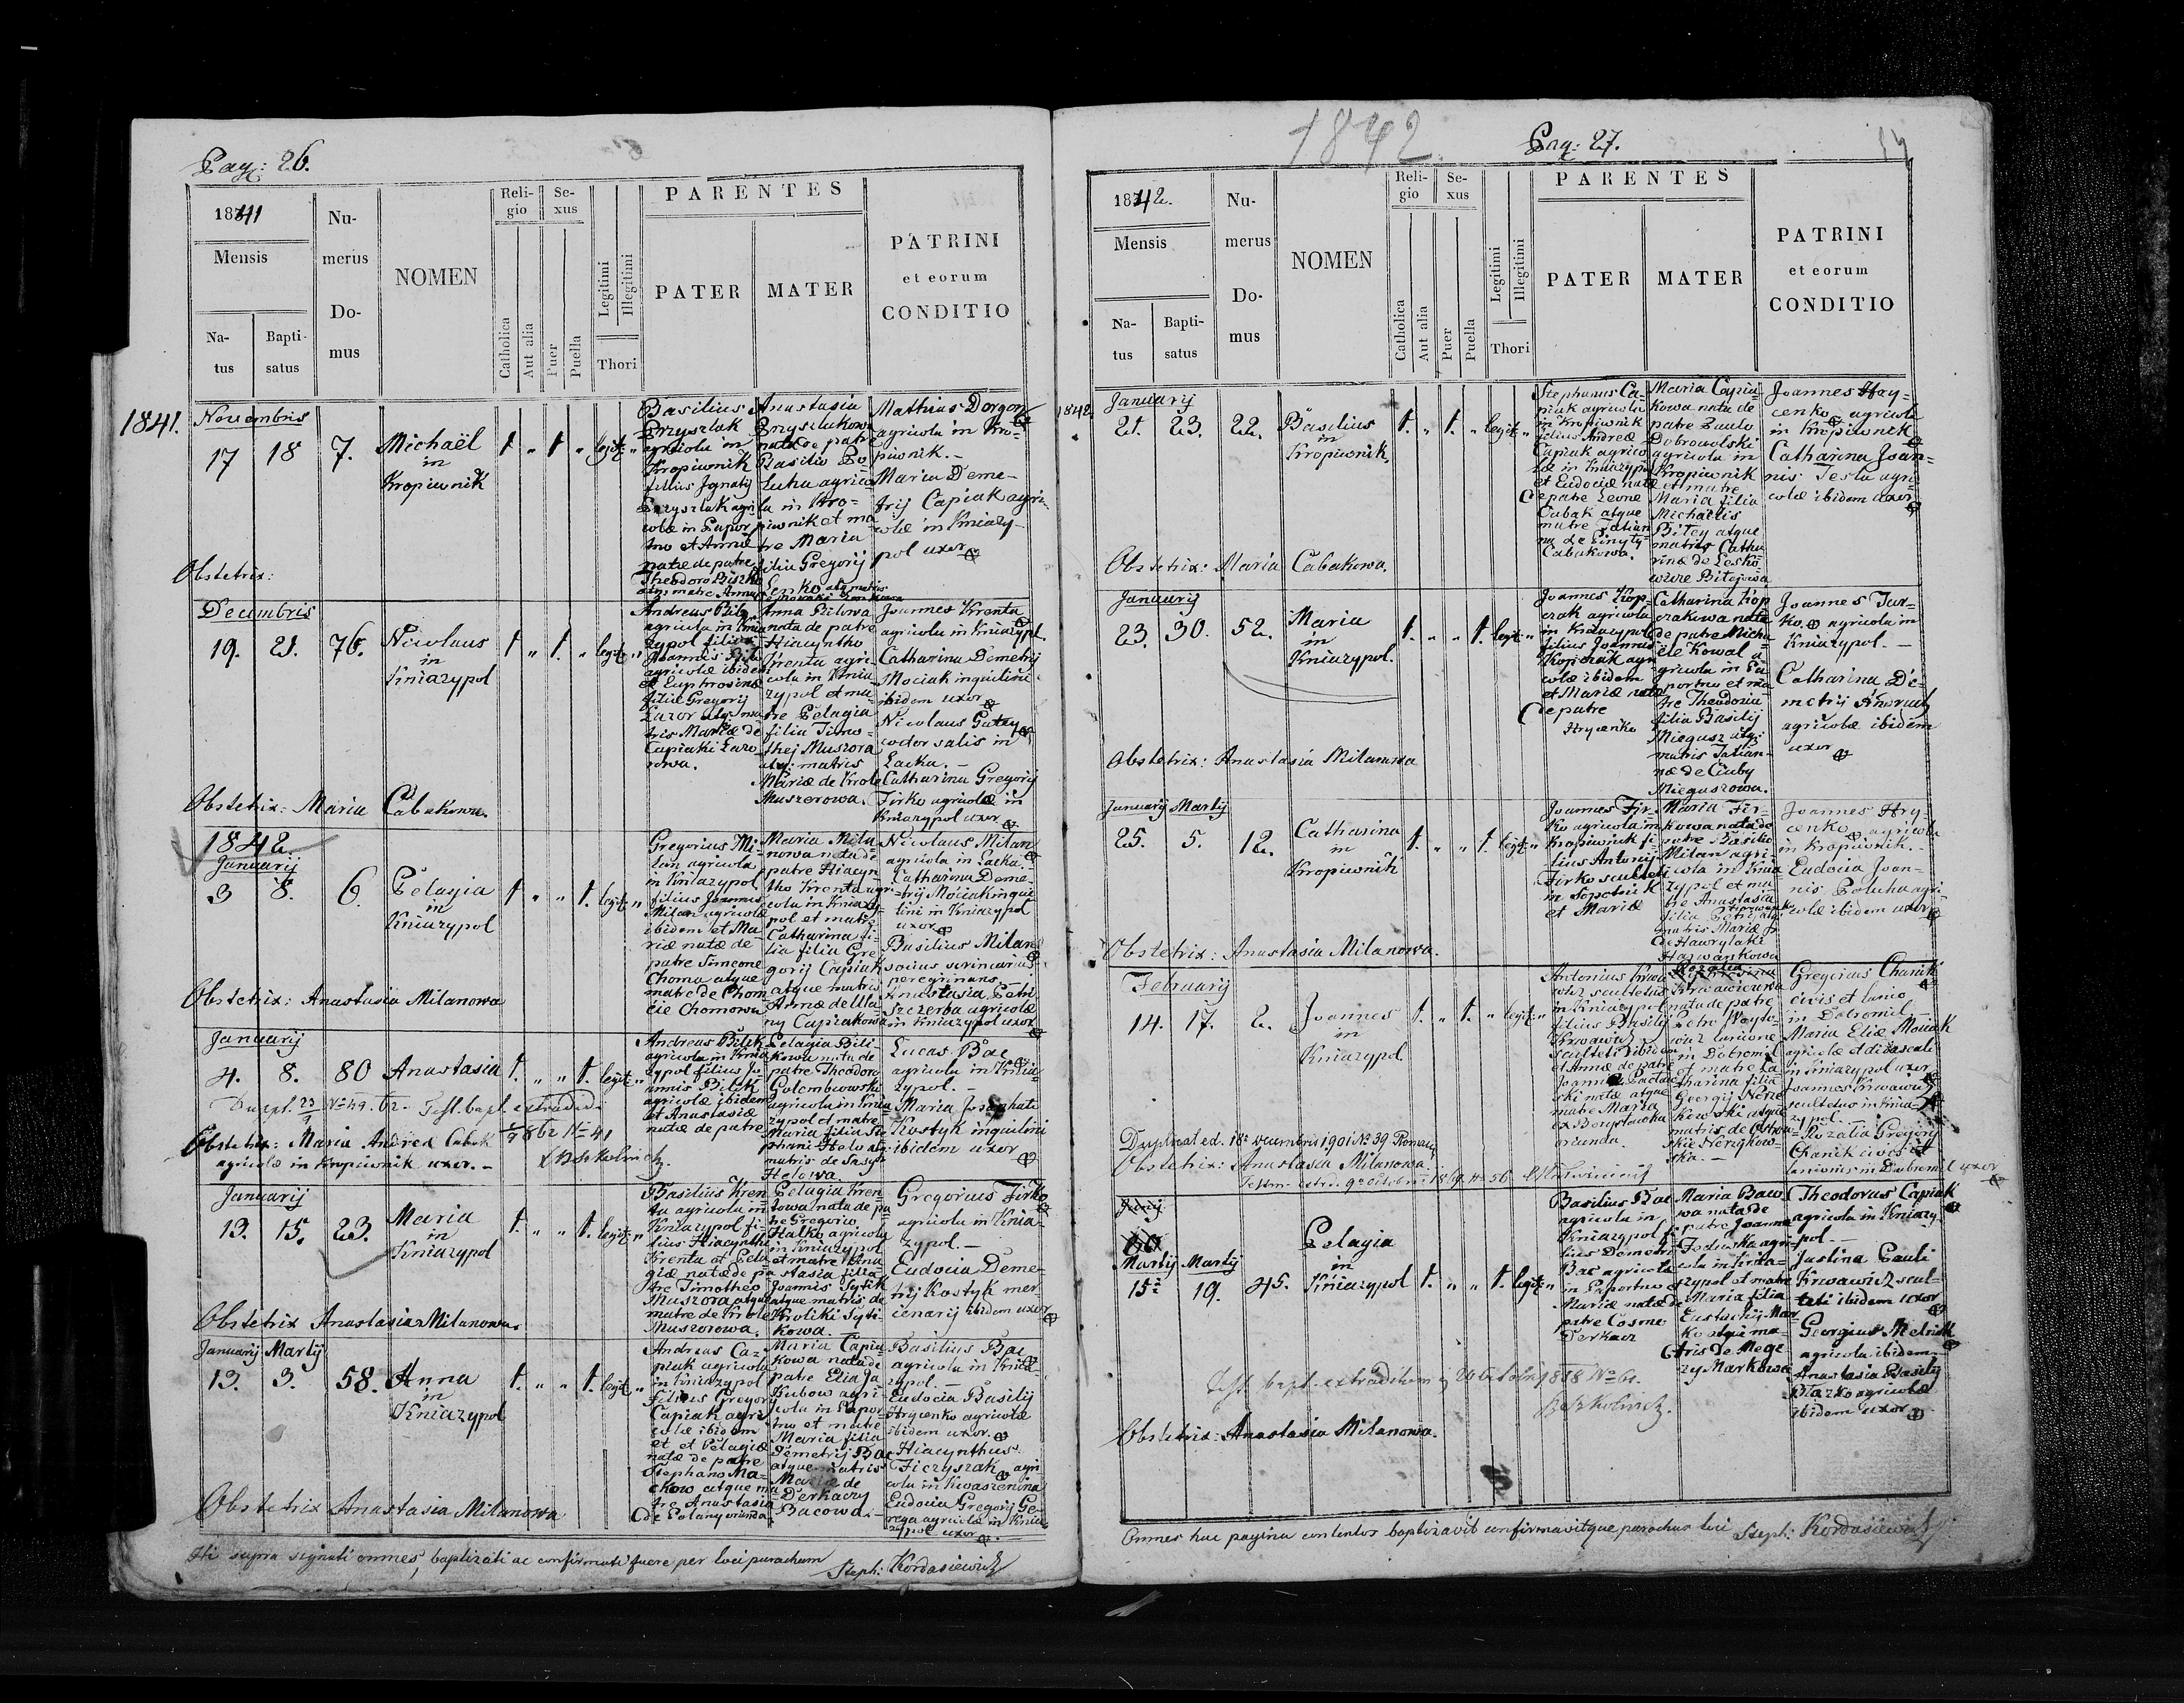 Pag: 26.
1841
Mensis
Natus
Baptisatus
Numerus Domus
NOMEN
Religio
Catholica
Aut alia
Sexus
Puer
Puella
Legitimi
Illegitimi
Thori
PARENTES
PATER
MATER
PATRINI
et eorum
CONDITIO
1841. Novembris
17 18 7. Michaël
in
Kropiwnik
1 " 1 " legit: "
Basilius
agricola in
Kropiwnik
filius Ignatij
natæ de patre
Anastasia
nata de patre
Basilio
agrico
la in Kro=
piwnik et ma
tre Maria
filia Gregorij
Mathias Dorgon
agricola in Kro=
piwnik. -
Maria Deme=
trij Capiak agri=
colæ in Kniazy=
pol uxor
Obstetrix:
Decembris
19. 21. 76. Nicolaus
in
Kniazypol
1 " 1. " legit: "
Andreas
agricola in Knia
zypol filius
Joannis
agricolæ ibidem
et Euphrosinæ
filiæ Gregorij
Lazor atq: ma
tris Mariæ de
Capiaki Lazo=
rowa.
Anna
nata de patre
Hiacyntho
Krenta agri=
cola in Knia=
zypol et ma=
tre Pelagia
filia Timo=
thej Muszora
atq: matris
Mariæ de Krole
Muszorowa.
Joannes Krenta
agricola in Kniazypl.
Catharina Demetrij
Mociak inquilini
ibidem uxor
Nicolaus
coctor salis in
Lacka. -
Catharina Gregorij
Firko agricolæ in
Kniazypol uxor
Obstetrix: Maria Cabakowa.
1842.
Januarij
3 8. 6. Pelagia
in
Kniazypol
1 " " 1. legit: "
Gregorius Mi=
lan agricola
in Kniazypol
filius Joannis
Milan agricolæ
ibidem et Ma=
riæ natæ de
patre Simeone
Choma atque
matre de Chom
cie Chomowa
Maria Mila=
nowa nata de
patre Hiacyn=
tho Krenta agri=
cola in Kniazy=
pol et matre
Catharina fi=
lia filia Gre=
gorij Capiak
atque matris
Annæ de
Capiakowa
Nicolaus Milan
agricola in Lacka. -
Catharina Deme=
trij Mociak inqui=
lini in Kniazypol
uxor
Basilius Milan
peregrinans
Anastasia Petri
Szczerba agricolæ
in Kniazypol uxor
Obstetrix: Anastasia Milanowa
Januarij
4. 8. 80 Anastasia 1. " " 1. legit: "
Andreas Bilik
agricola in Knia
zypol filius Jo=
annis Bilik
agricolæ ibidem
et Anastasiæ
natæ de patre
Pelagia Bili=
kowa nata de
patre Theodoro
Golembiowski
agricola in Knia=
zypol et matre
Maria filia Ste
phani
matris de
Lucas Bac
agricola in Knia=
zypol. -
Maria Josaphati
Kostyk inquilini
ibidem uxor
Obstetrix: Maria Andreæ Cabak
agricolæ in Kropiwnik uxor. -
Januarij
13. 15. 23. Maria
in
Kniazypol
1. " " 1. legit: "
Basilius Kren
ta agricola in
Kniazypol fi=
lius Hiacynthi
Krenta et Pela
giæ natæ de pa
tre Timotheo
Muszora atque
matre de Krole
Muszorowa.
Pelagia Kren=
towa nata de pa
tre Gregorio
Halko agricola
in Kniazypol
et matre Ana
stasia filia
Joannis Sytik
atque matris de
Kroliki Syti=
kowa. -
Gregorius Firko
agricola in Knia=
zypol. -
Eudocia Deme=
trij Kostyk mer=
cenarij ibidem uxor
Obstetrix Anastasia Milanowa.
Januarij Martij
13. 3. 58. Anna
in
Kniazypol
1. " " 1. legit: "
Andreas Ca=
piak agricola
in Kniazypol
filius Gregorij
Capiak agri
colæ ibidem
et et Pelagiæ
natæ de patre
Stephano Ma=
ckow atque ma
tre Anastasia
oriunda
Maria Capia=
kowa nata de
patre Elia Ja
kubow agri=
cola in
et matre
Maria filia
Demetrij Bac
atque matris
Mariæ de
Derkaczy
Bacowa. -
Basilius Bac
agricola in Knia=
zypol. -
Eudocia Basilij
Hrycenko agricolæ
ibidem uxor.
Hiacynthus
Ficzyszak agri
cola in Kwaszenina
Eudocia Gregorij Ge=
rega agricolæ in Knia
zypol uxor
Obstetrix Anastasia Milanowa
Hi supra signati omnes, baptizati ac confirmati fuere per loci parochum
Steph: Kordasiewicz
1842
Pag: 27.
14
1842.
Mensis
Natus
Baptisatus
Numerus Domus
NOMEN
Religio
Catholica
Aut alia
Sexus
Puer
Puella
Legitimi
Illegitimi
Thori
PARENTES
PATER
MATER
PATRINI
et eorum
CONDITIO
1842 Januarij
21. 23. 22. Basilius
in
Kropiwnik
1. " 1. " legit: "
Stephanus Ca=
piak agricola
in Kropiwnik
filius Andreæ
Capiak agrico=
læ in Kniazypol
et Eudociæ natæ
de patre Leone
Cabak atque
matre Tatian
na
Cabakowa.
Maria Capia=
kowa nata de
patre Paulo
Dobrowolski
agricola in
Kropiwnik
et matre
Maria filia
Michaelis
Bitey atque
matris Catha
rinæ de
Bitejowa
Joannes Hry=
cenko agricola
in Kropiwnik
Catharina Joan=
nis Tesla agri=
colæ ibidem uxor
Obstetrix: Maria Cabakowa.
Januarij
23. 30. 52. Maria
in
Kniazypol.
1. " " 1. legit: "
Joannes Kop=
czak agricola
in Kniazypol
filius Joannis
Kopczak agri
colæ ibidem
et Mariæ natæ
de patre
Hrycenko
Catharina Kop
czakowa nata
de patre Micha
ele Kowal a=
gricola in
et ma
tre Theodosia
filia Basilij
Miegusz atq:
matris Tatian=
næ de Ciuby
Mieguszowa.
Joannes Jur=
ko. agricola in
Kniazypol. -
Catharina De=
metrij
agricolæ ibidem
uxor
Obstetrix: Anastasia Milanowa
Januarij Martij
25. 5. 12. Catharina
in
Kropiwnik
1. " " 1. legit: "
Joannes Fir=
ko agricola in
Kropiwnik fi
lius Antonij
Firko sculteti
in
et Mariæ
Maria Fir=
kowa nata de
patre Basilio
Milan agri=
cola in Knia
zypol et ma
tre Anastasia
filia Petri
matris Mariæ
de Hawrylaki
Joannes Hry=
cenko agricola
in Kropiwnik. -
Eudocia Joan=
nis Poluha agri
colæ ibidem uxor
Obstetrix: Anastasia Milanowa.
Februarij
14. 17. 2. Joannes
in
Kniazypol
1. " 1. " legit: "
Antonius Krwa
wicz scultetus
in Kniazypol
filius Basilij
Krwawicz
sculteti ibidem
et Annæ de patre
matre Maria
oriunda.
Rozalia
Krwawiczowa
nata de patre
Petro Wayto=
wicz lanione
in Dobromil
et matre Ca
tharina filia
Georgij
atque
matris de
Gregorius Chanik
civis et lanio
in Dobromil
Maria Eliæ Mociak
agricolæ et didascali
in Kniazypol uxor
Joannes Krwawicz
scultetus in Knia=
zypol. -
Rozalia Gregorij
Chanik civis et
lanionis in Dobromil uxor
Duplicat ed. 18 decembris 1901 No 39
Obstetrix: Anastasia Milanowa.
Martij Martij
15 19. 45. Pelagia
in
Kniazypol
1. " " 1. legit: "
Basilius Bac
agricola in
Kniazypol fi
lius Demetrij
Bac agricolæ
in
Mariæ natæ de
patre Cosma
Derkacz
Maria Baco=
wa nata de
patre Joanne
Fedewka agri=
cola in Knia=
zypol et matre
Maria filia
Eustachij Mar=
ko atque ma=
tris de
Markowa
Theodorus Capiak
agricola in Kniazy
pol. -
Justina Pauli
Krwawicz scul=
teti ibidem uxor
Georgius Melnik
agricola ibidem
Anastasia Basilij
agricolæ
ibidem uxor
Obstetrix: Anastasia Milanowa.
Omnes hac pagina contentos baptizavit confirmavitque parochus loci Steph: Kordasiewicz